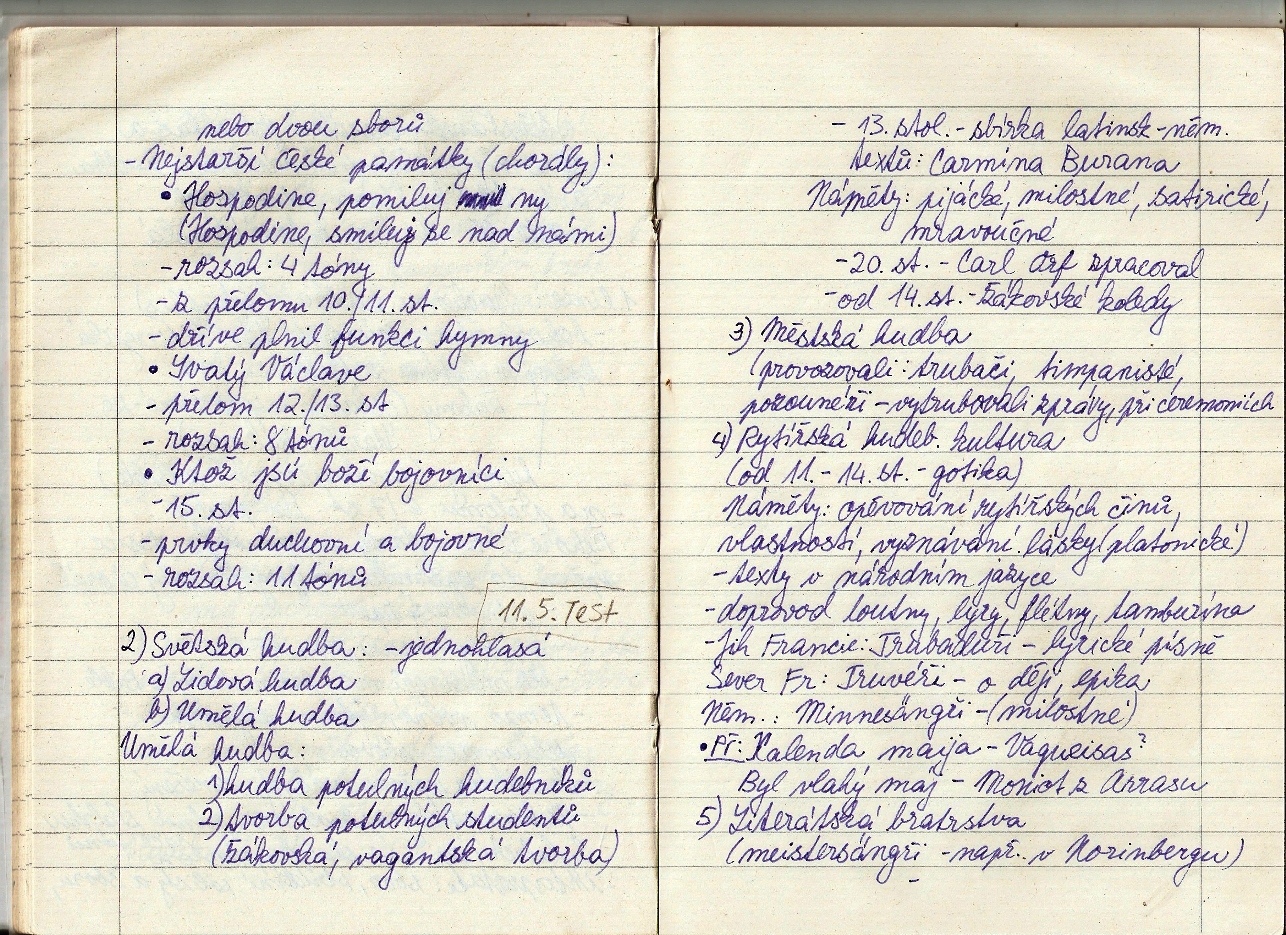 nebo dvou sborů
- Nejstarší české památky (chorály):
• Hospodine, pomiluj ny
(Hospodine, smiluj se nad námi)
- rozsah: 4 tóny
- z přelomu 10./11. st.
- dříve plnil funkci hymny
• Svatý Václave
- přelom 12./13. st
- rozsah: 8 tónů
• Ktož jsú boží bojovníci
- 15. st.
- prvky duchovní a bojovné
- rozsah: 11 tónů
11. 5. Test
2) Světská hudba: - jednohlasá
a) Lidová hudba
b) Umělá hudba
Umělá hudba:
1) hudba potulných hudebníků
2) tvorba potulných studentů
(žákovská, vagantská tvorba)
- 13. stol. - sbírka latinsk-něm.
textů: Carmina Burana
Náměty: pijácké, milostné, satirické,
mravoučné
- 20. st. - Carl Orf zpracoval
- od 14. st. - žákovské koledy
3) Městská hudba
(provozovali: trubači, timpanisté,
pozounéři - vytrubovali zprávy, při ceremoniích
4) Rytířská hudeb. kultura
(od 11. - 14. st. - gotika)
Náměty: opěvování rytířských činů,
vlastností, vyznávání lásky (platonické)
- texty v národním jazyce
- doprovod loutny, lyry, flétny, tamburína
- Jih Francie: Trubadúři - lyrické písně
Sever Fr: Truvéři - o ději, epika
Něm.: Minnesängři - (milostné)
• Př: Kalenda maija - Vaqueisas?
Byl vlahý máj - Moniot z Arrasu
5) Literátská bratrstva
(meistersängři - např. v Norinbergu)